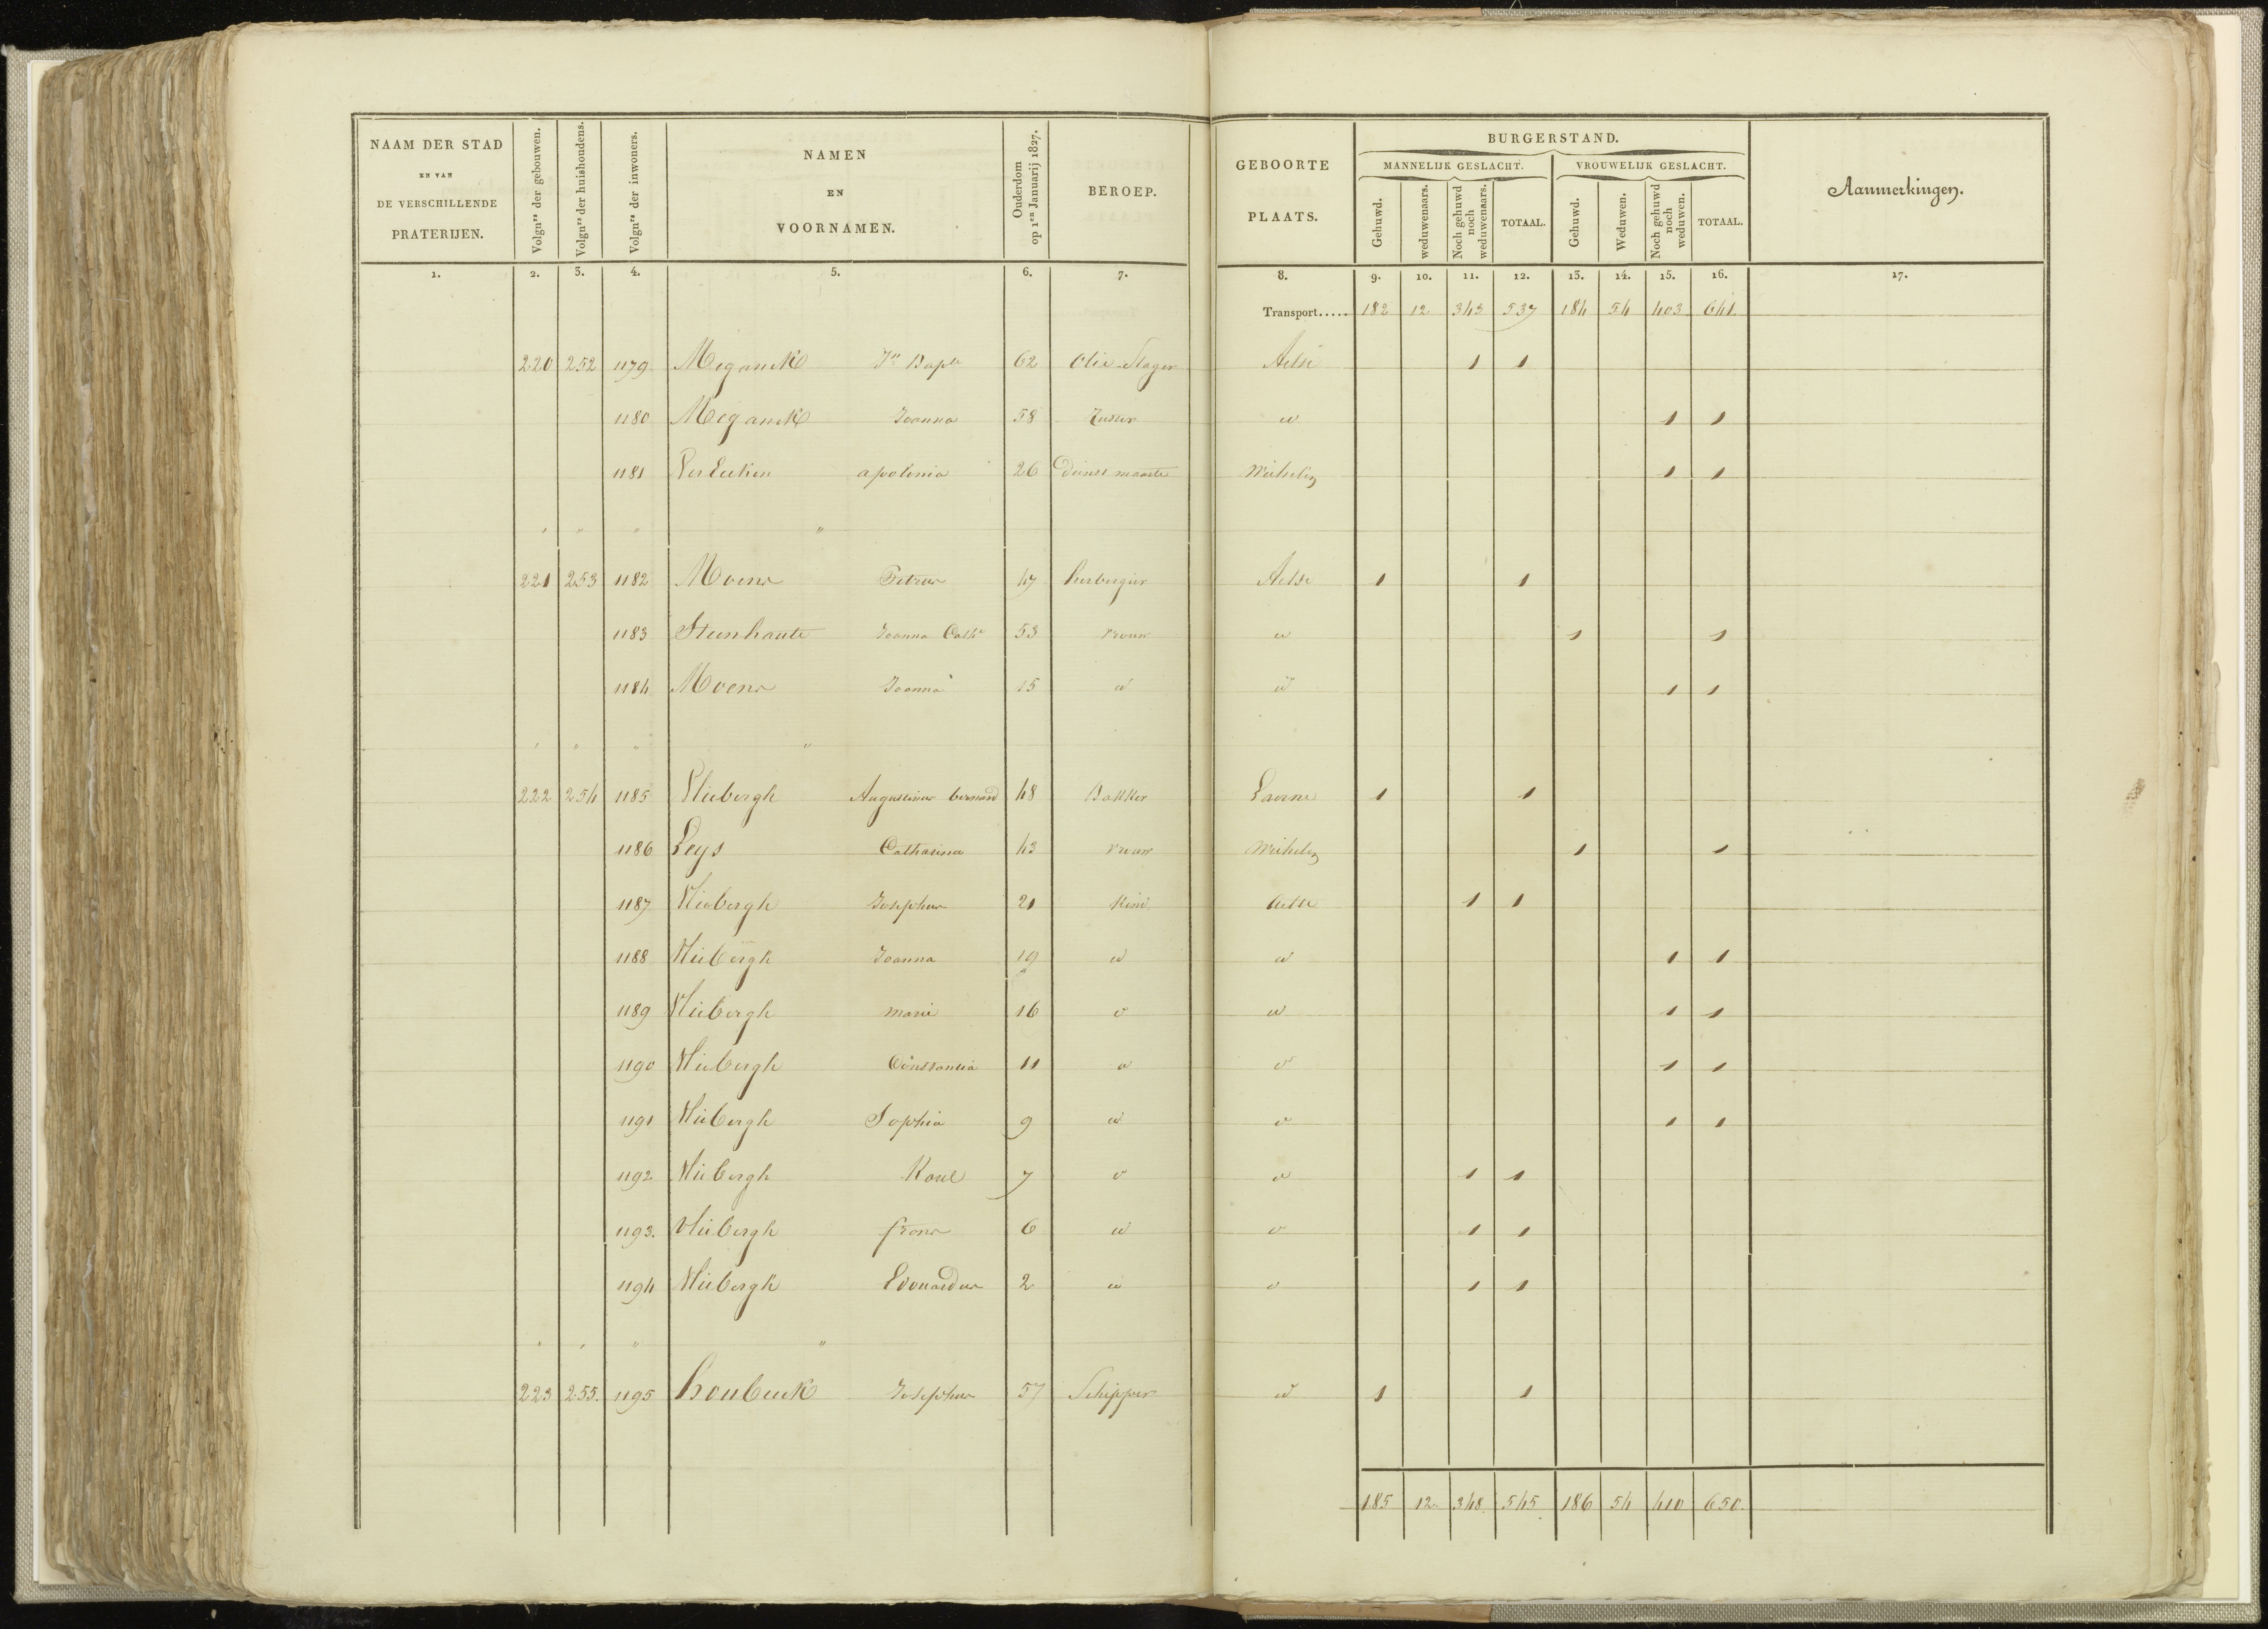 NAAM DER STAD
EN VAN
DE VERSCHILLENDE
PRATERIJEN.
Volgn^rs der gebouwen.
Volgn^rs der huishoudens.
Volgn^rs der inwoners.
NAMEN
EN
VOORNAMEN.
Ouderdom
op 1^en Januarij 1827.
BEROEP.
GEBOORTE
PLAATS.
BURGERSTAND.
MANNELIJK GESLACHT. VROUWELIJK GESLACHT.
Gehuwd.
weduwenaars.
Noch gehuwd
noch
weduwenaars.
TOTAAL.
Gehuwd.
Weduwen.
Noch gehuwd
noch
weduwen.
TOTAAL.
Aanmerkingen.
1. 2. 3. 4. 5. 6. 7. 8. 9. 10. 11. 12. 13. 14. 15. 16. 17.
Transport..... 182 12 343 537 184 54 403 641.
220 252 1179 Meganck Jn Bapt 62 Olie Slager Aelst 1 1
1180 Meganck Joanna 58 Zuster 1 1
1181 apolonia 26 Dienst maarte Michelen 1 1
" " " "
221 253 1182 Moens Petrus 47 herbergier Aelst 1 1
1183 Steenhaute Joanna Cath 53 vrouw 1 1
1184 Moens Joanna 15 1 1
" " " "
222 254 1185 Vliebergh Augustinus bernard 48 Bakker Laerne 1 1
1186 Leys Catharina 43 vrouw Michelen 1 1
1187 Vliebergh Josephus 21 Kind Aelst 1 1
1188 Vliebergh Joanna 19 1 1
1189 Vliebergh marie 16 1 1
1190 Vliebergh Constantia 11 1 1
1191 Vliebergh Sophia 9 1 1
1192 Vliebergh Karel 7 1 1
1193. Vliebergh frans 6 1 1
1194 Vliebergh Edouardus 2 1 1
" " " "
223 255. 1195 Josephus 57 Schipper 1 1
185 12. 348 545 186 54 410 650.